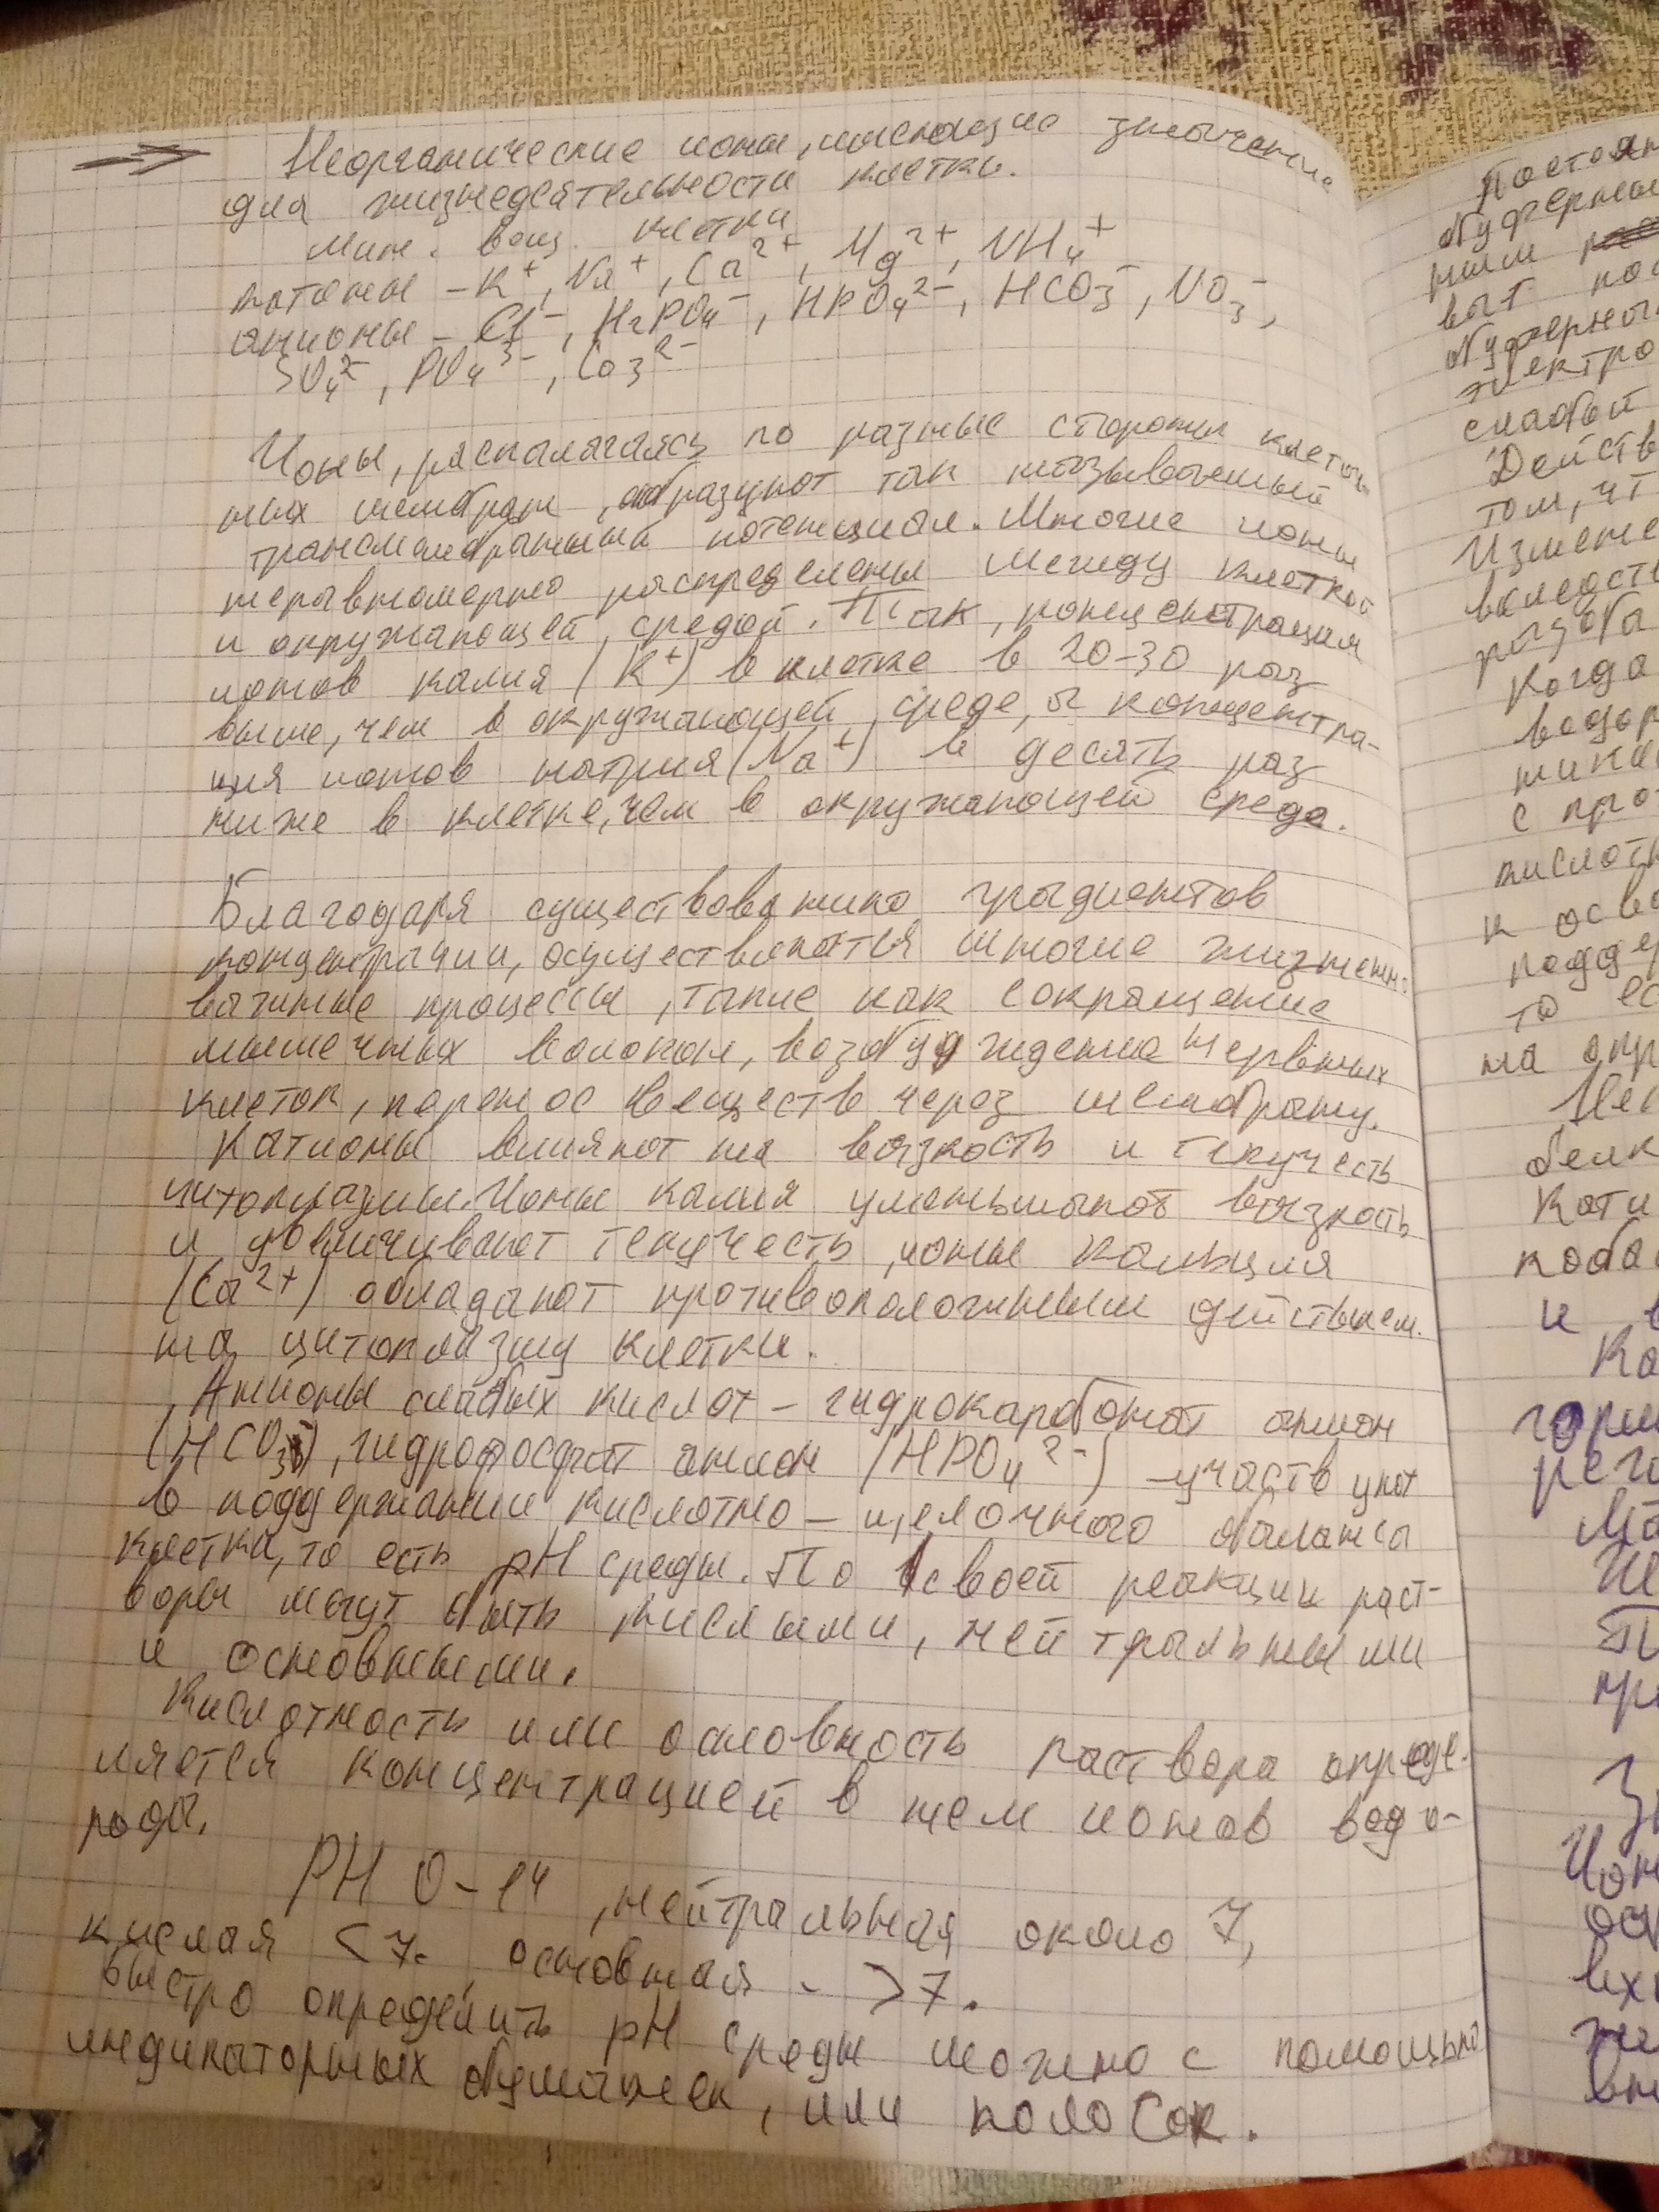 Неорганические ионы, имеющие значение
для жизнедеятельности клетки.
Мин. вещ. клетки
катионы – K⁺, Na⁺, Ca²⁺, Mg²⁺, NH₄⁺
анионы – Cl⁻, H₂PO₄⁻, HPO₄²⁻, HCO₃⁻, NO₃⁻,
SO₄²⁻, PO₄³⁻, Co₃²⁻
Ионы, располагаясь по разные стороны клеточ
ных мембран, образуют так называемый
трансмембранный потенциал. Многие ионы
неравномерно распределены между клеткой
и окружающей средой. Так, концентрация
ионов калия (K⁺) в клетке в 20-30 раз
выше, чем в окружающей среде, а концентра-
ция ионов натрия (Na⁺) в десять раз
ниже в клетке, чем в окружающей среде.
Благодаря существованию градиентов
концентрации, осуществляются многие жизненн.
важные процессы, такие как сокращение
мышечных волокон, возбуждение нервных
клеток, перенос веществ через мембрану.
Катионы влияют на вязкость и текучесть
цитоплазмы. Ионы калия уменьшают вязкость
и увеличивают текучесть, ионы кальция
(Ca²⁺) обладают противоположным действием.
на цитоплазму клетки.
Анионы слабых кислот – гидрокарбонат анион
(HCO₃⁻), гидрофосфат анион (HPO₄²⁻) – участвуют
в поддержании кислотно – щелочного баланса
клетки, то есть pH среды. По своей реакции раст-
воры могут быть кислыми, нейтральными
и основными.
Кислотность или основность раствора опреде-
ляется концентрацией в нем ионов водо-
рода.
PH 0 – 14, нейтральная около 7,
кислая < 7. основная - >7.
Быстро определить pH среды можно с помощью
индикаторных бумажек, или полосок.
том, чт
Когда
с про
к осво
на окр
белк
Кати
коба
и в